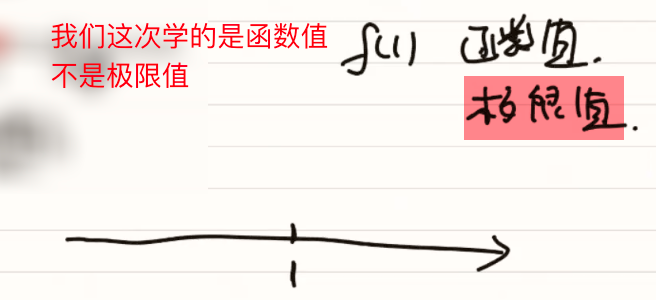 我们这次学的是函数值
不是极限值
f(1) 函数值.
极限值.
1